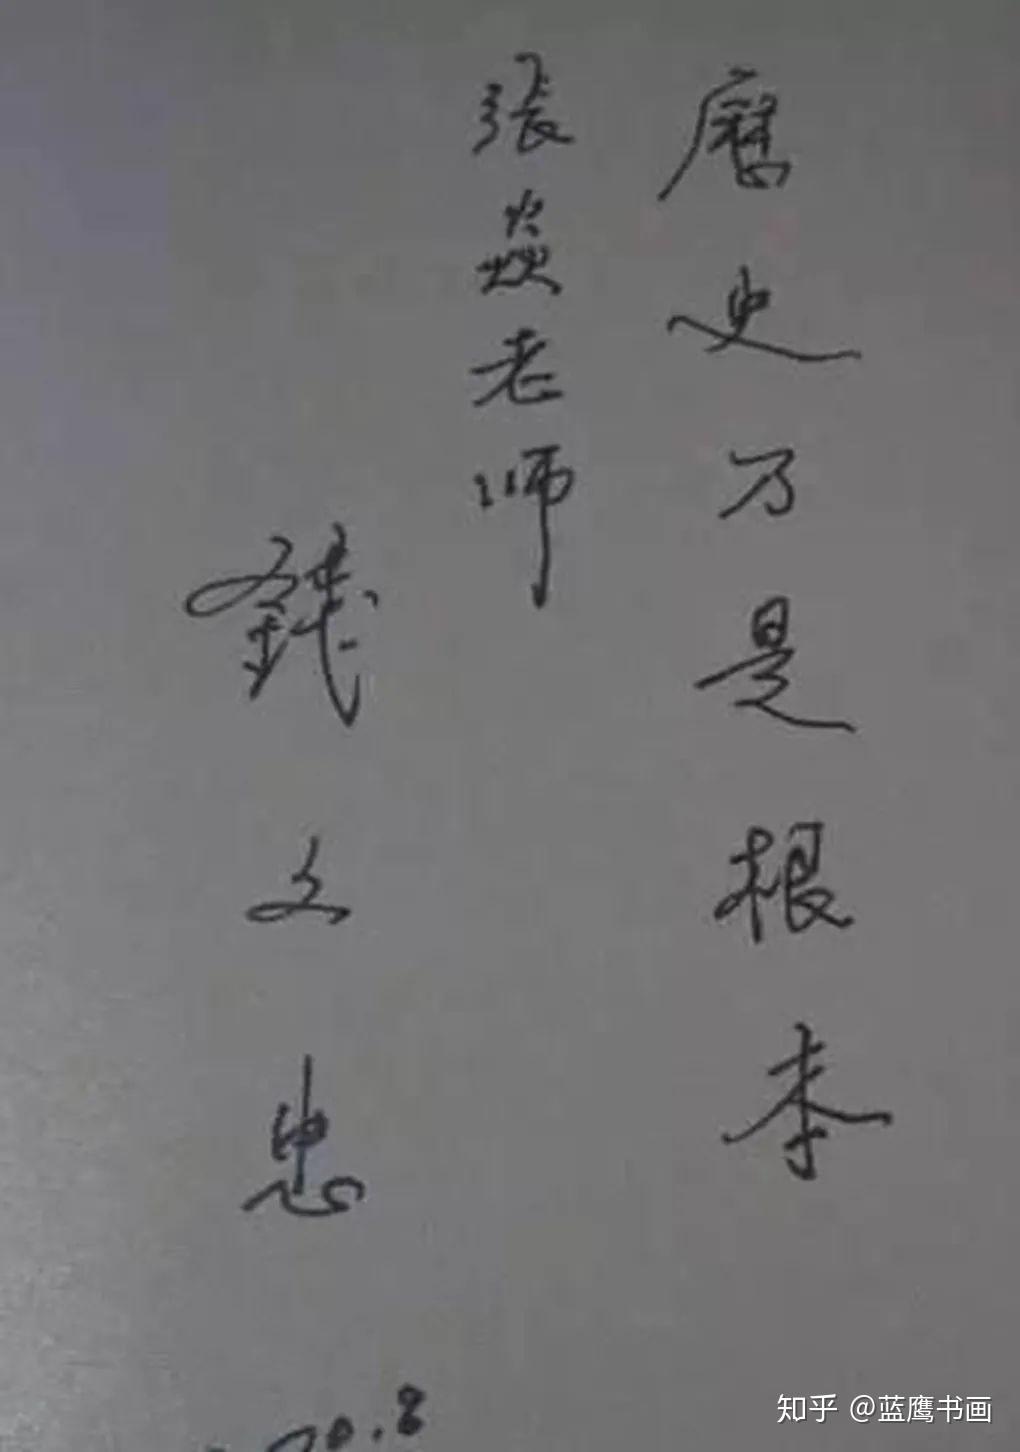 歷史乃是根本
張焱老师
錢文忠
20.8
知乎 @蓝鹰书画